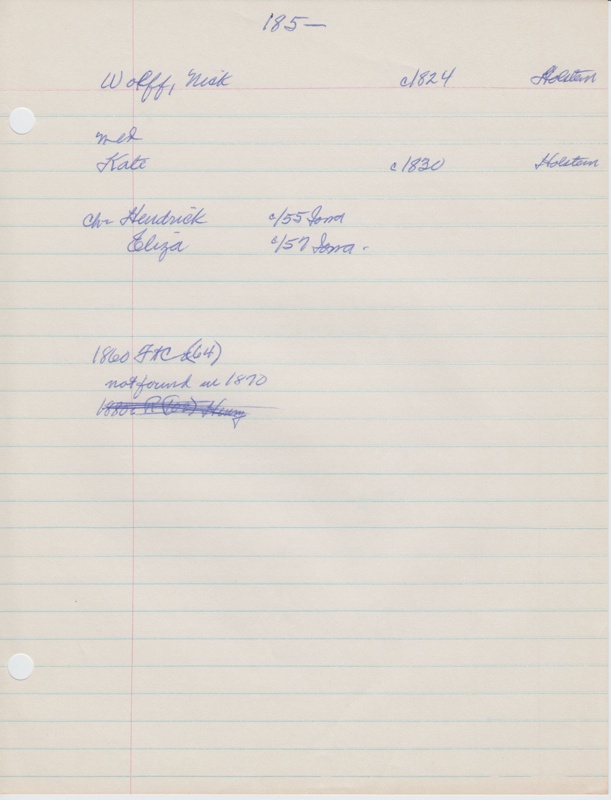 185—
Wolff, Nick c1824 Holstein
med
Kate c1830 Holstein
ch- Hendrick c/55 Iowa
Eliza c/57 Iowa -
1860 (64)
not found in 1870
Henry